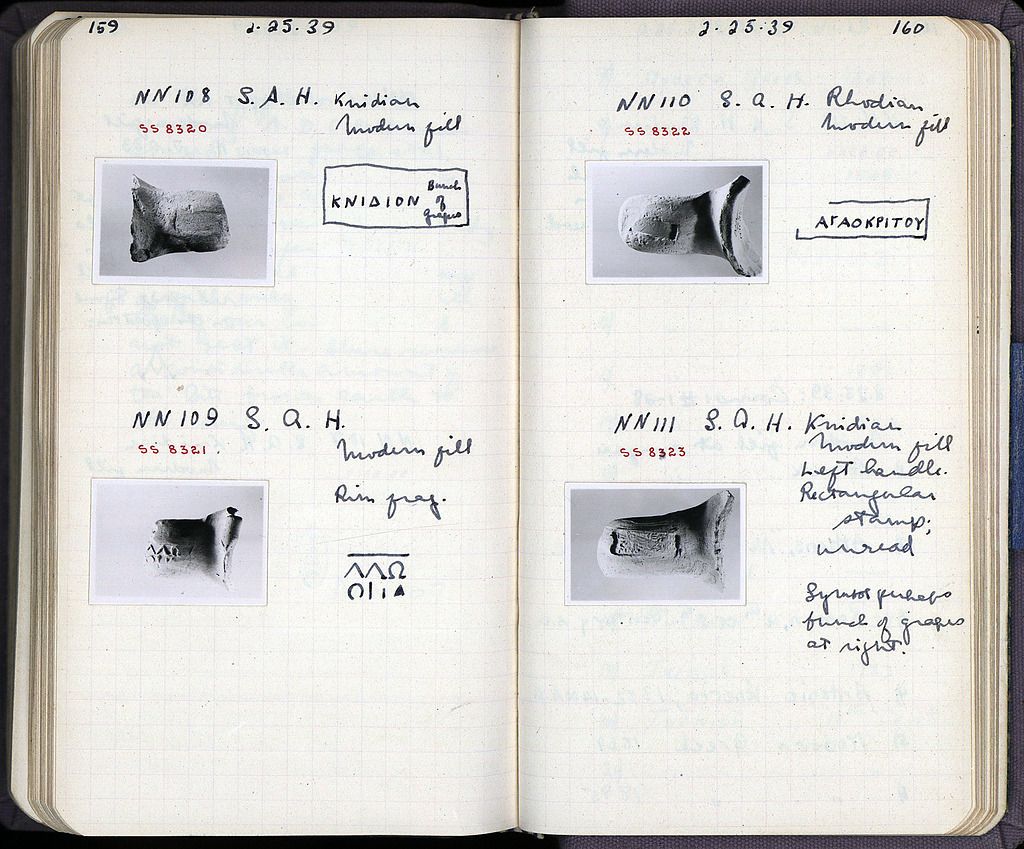 159
2-25-39
NN108 S.A.H. Knidian
Modern fill
SS 8320
ΚΝΙΔΙΟΝ
Bunch
of
grapes
NN109 S.A.H.
Modern fill
SS 8321
Rim frag.
ΛΛΩ
2-25-39
160
NN110 S.A.H. Rhodian
Modern fill
SS 8322
ΑΓΑΟΚΡΙΤΟΥ
NN111 S.A.H. Knidian
Modern fill
SS 8323
Left handle.
Rectangular
stamp;
unread
Symbol perhaps
bunch of grapes
at right.